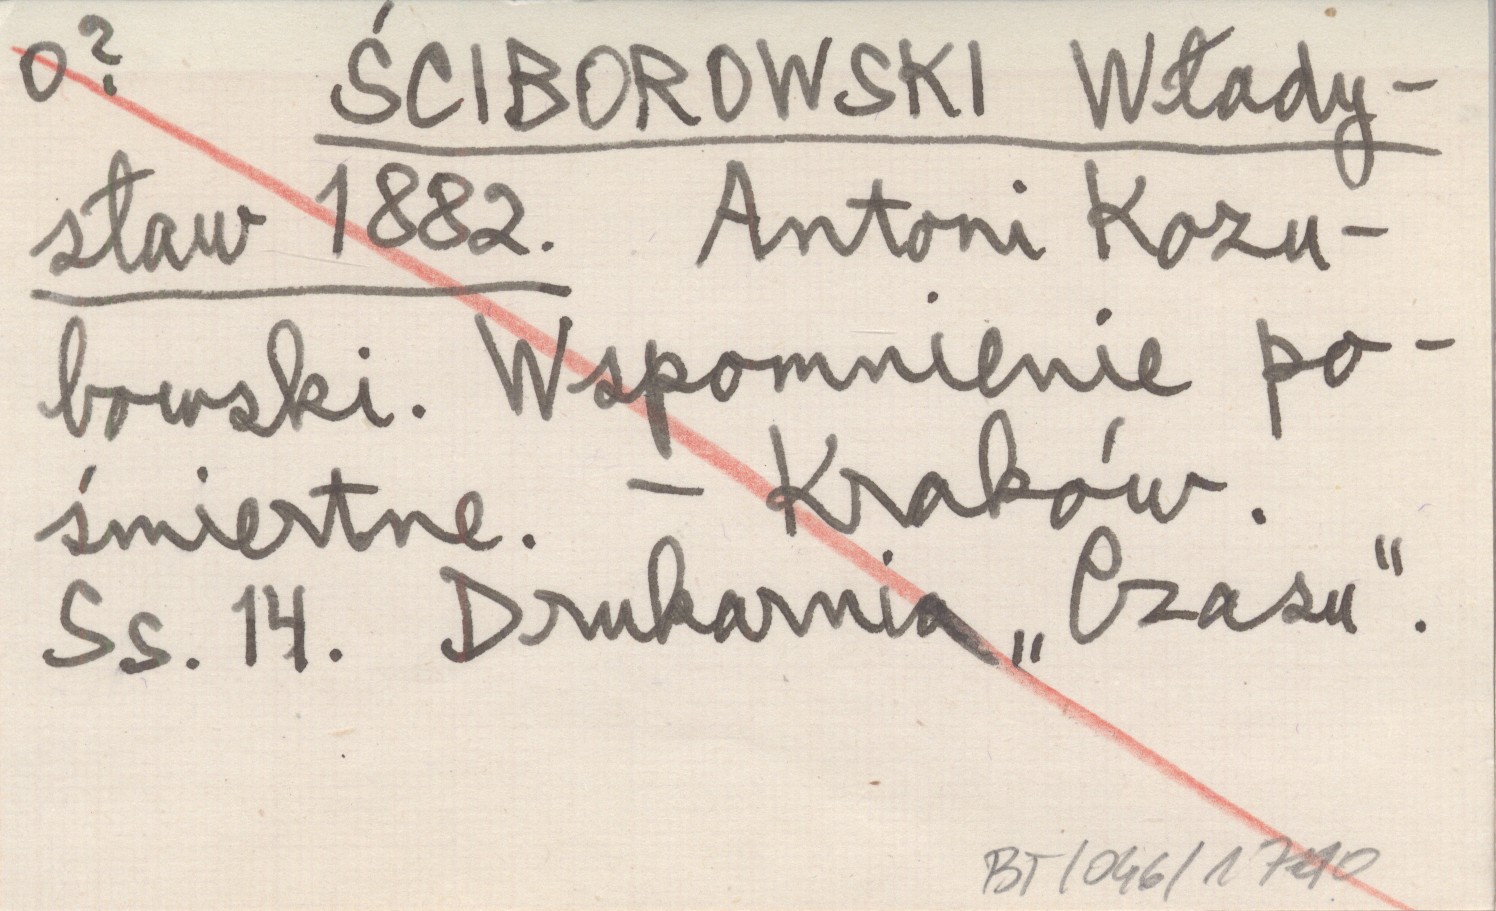 o? ŚCIBOROWSKI Włady-
sław 1882. Antoni Kozu-
bowski. Wspomnienie po-
śmiertne. – Kraków.
Ss. 14. Drukarnia „Czasu".
BT/046/